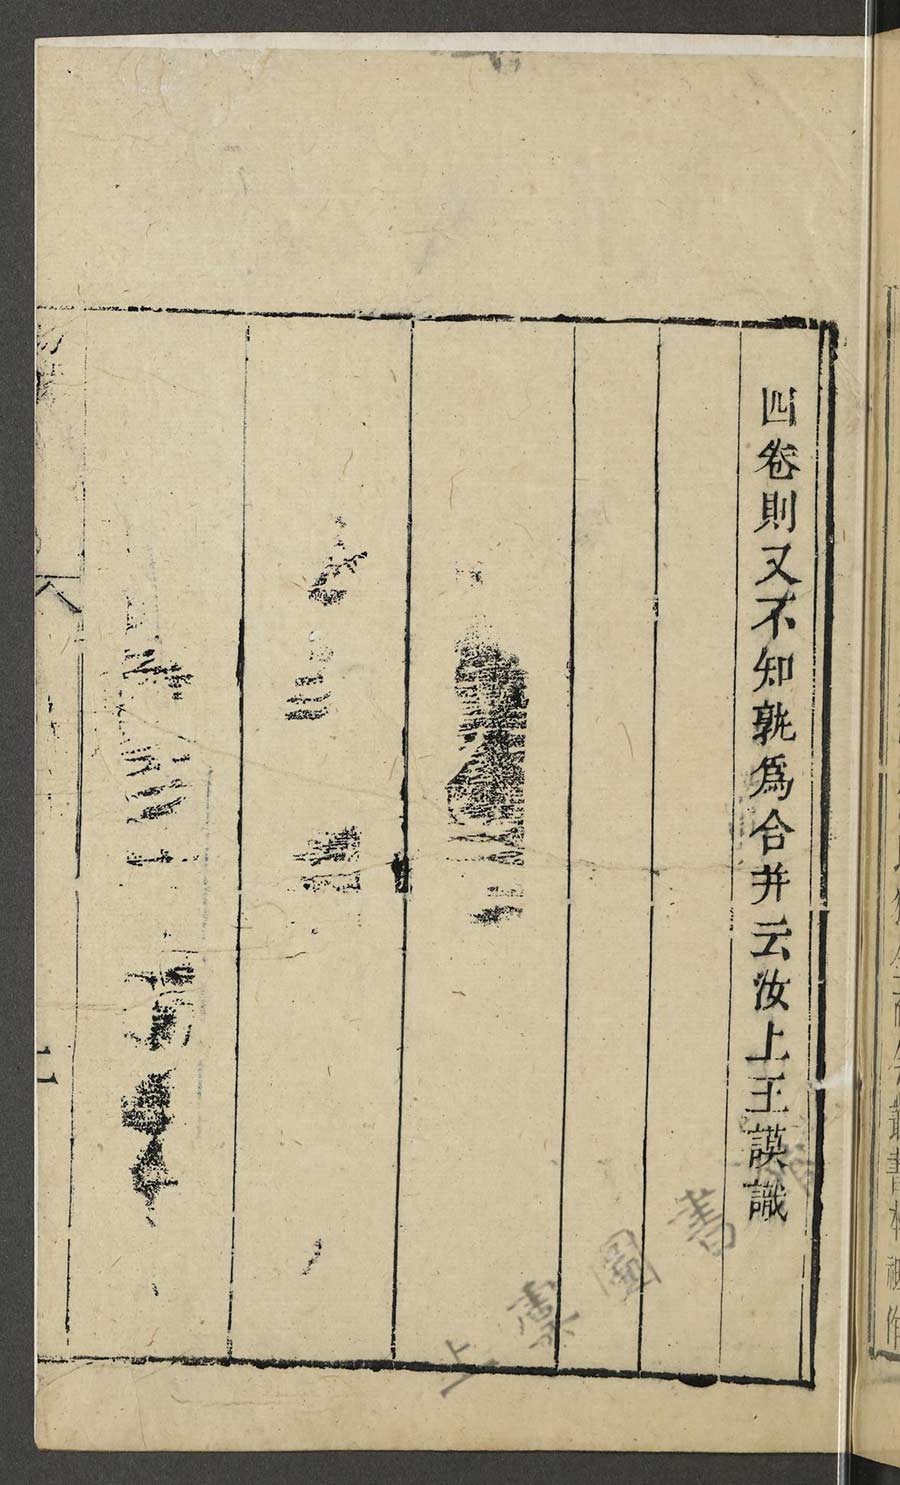 四卷則又不知孰爲合并云汝上王謨識
上虞圖書館